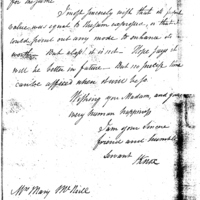 for my name
I wish sincerely with that its
value was equal to the sum expressed, or that I
could point out any mode to enhance its
worth. But alas! it is not. Hope says it
will be better in future. But no precise time
can be affixed when it will be so
Wishing you Madam, and
every human happiness
I am your sincere
friend and humble
servant
Knox
Mrs Mary McNeill